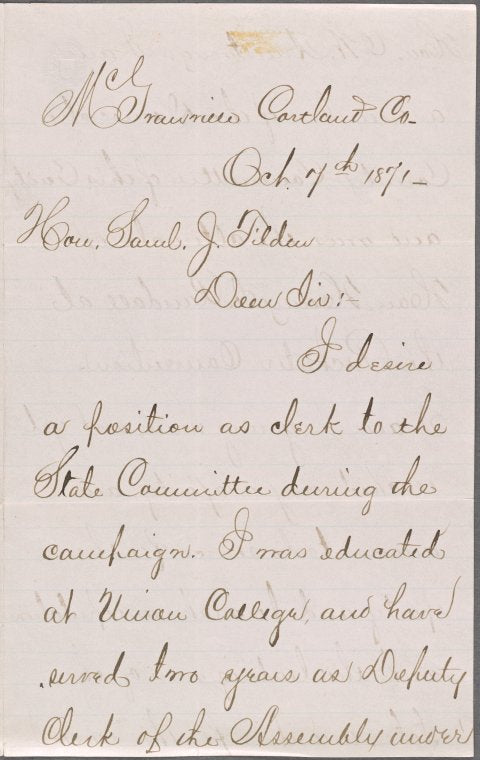 McGrawville Cortland Co-
Oct. 7th 1871-
Hon. Saml. J. Tilden
Dear Sir:-
I desire
a position as clerk to the
State Committee during the
campaign. I was educated
at Union College, and have
served two years as Deputy
Clerk of the Assembly under